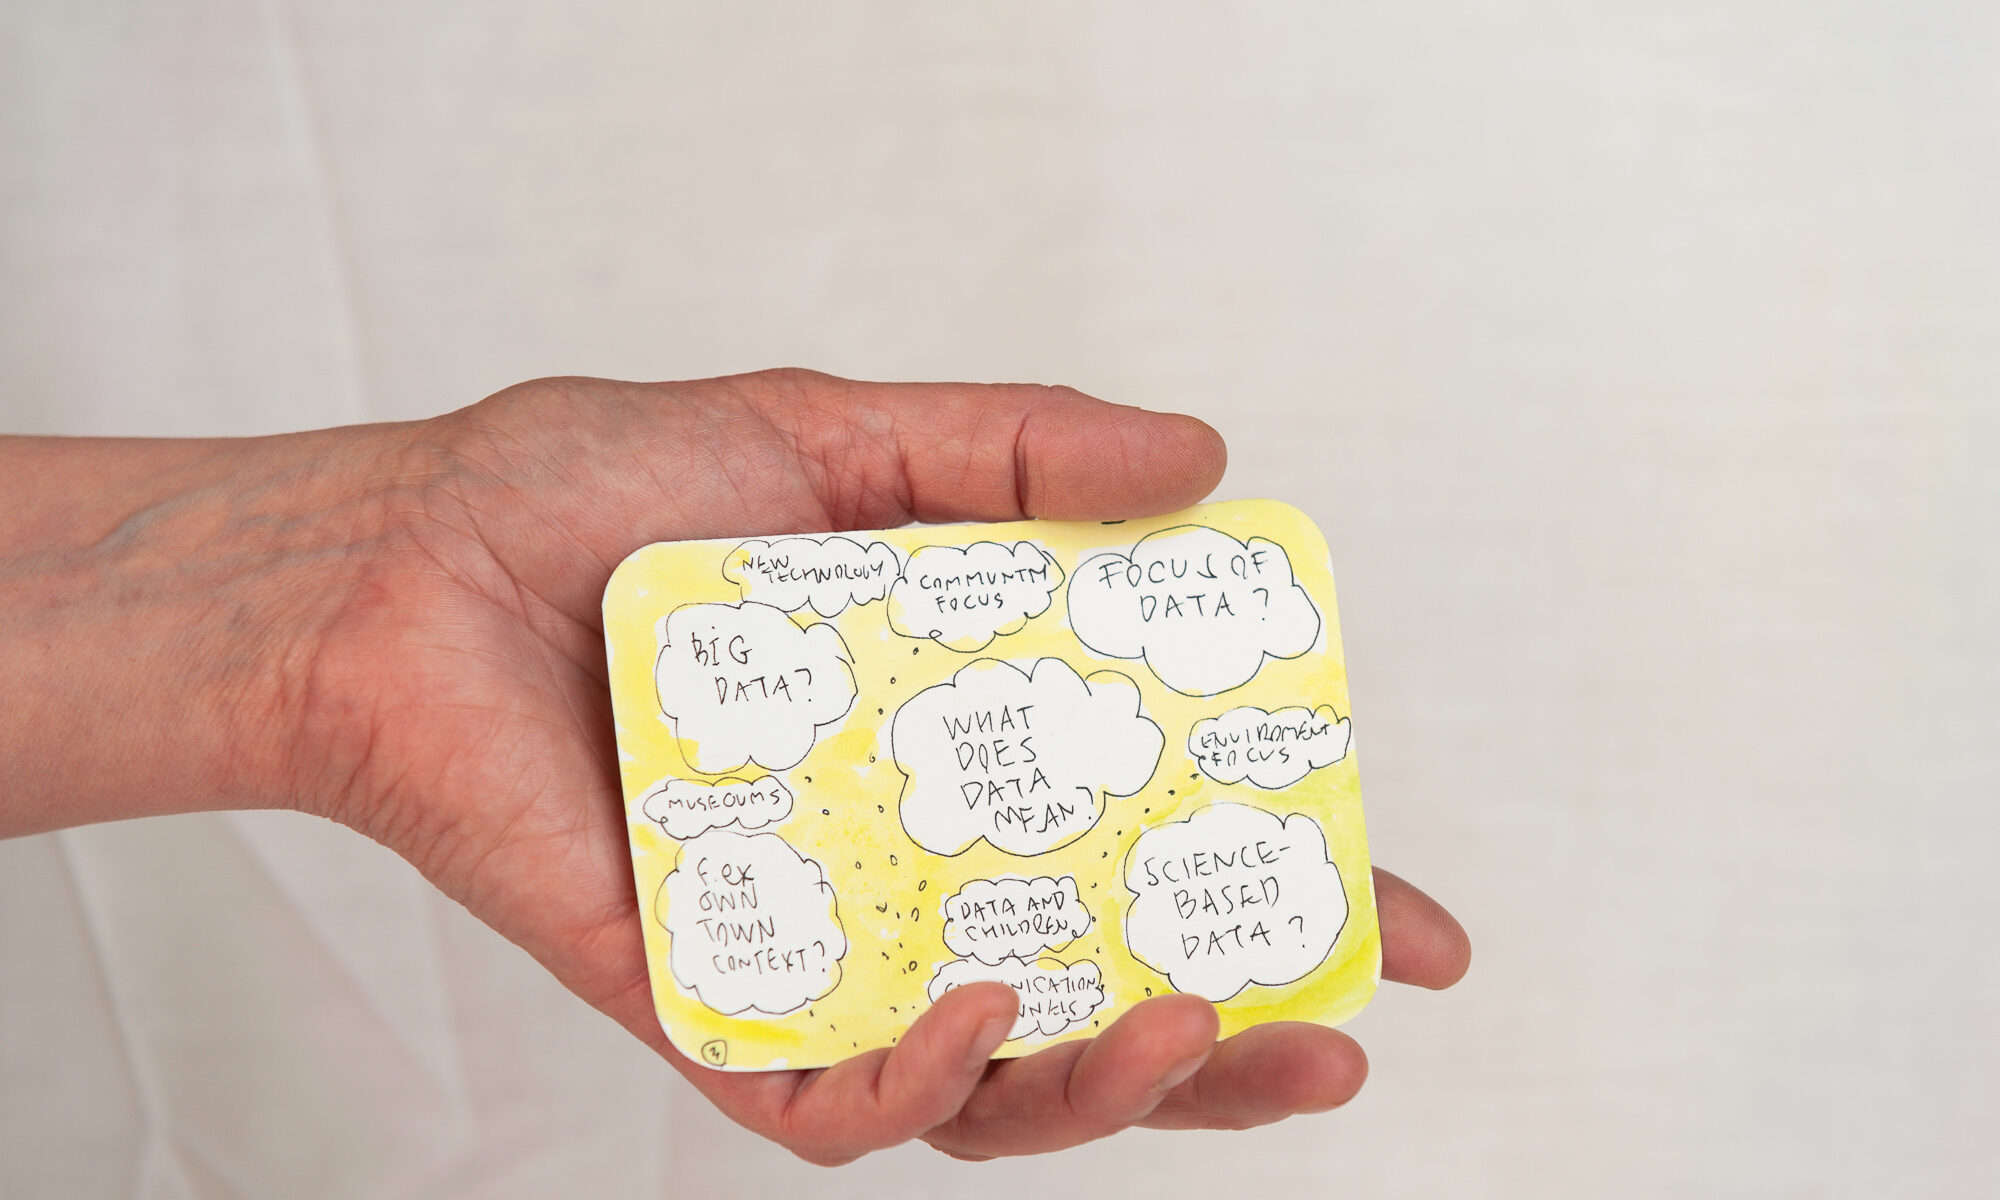 NEW
TECHNOLOGY
COMMUNITY
FOCUS
FOCUS OF
DATA?
BIG
DATA?
WHAT
DOES
DATA
MEAN?
ENVIROMENT
FOCUS
MUSEOUMS
F.ex
OWN
TOWN
CONTEXT?
DATA AND
CHILDREN
SCIENCE-
BASED
DATA?